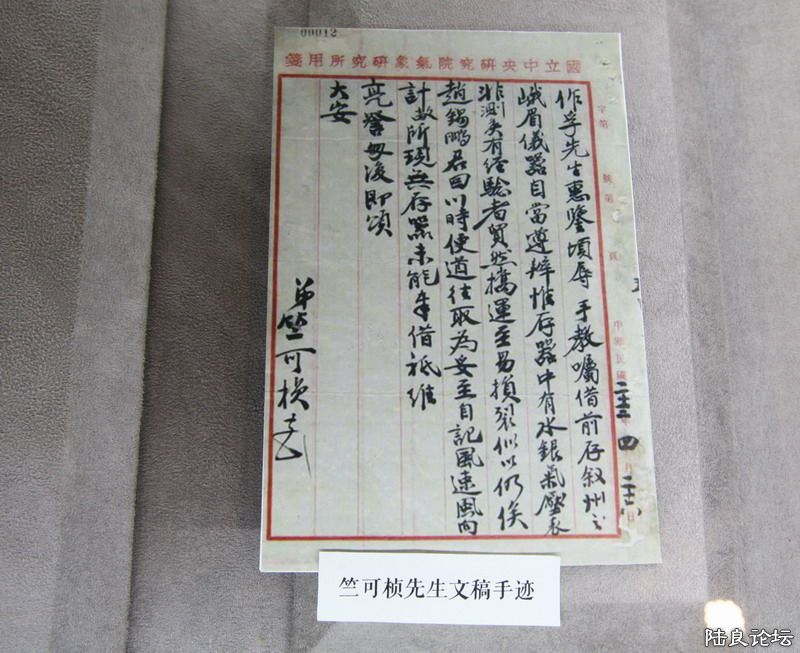 00012
國立中央硏究院氣象硏究所用箋
字第 號第 頁 中華民國 四月 日
作孚先生惠鑒頃辱 手教囑借前存叙州之
峨眉儀器自當遵辦惟存器中有水銀氣壓表
非測夫有經驗者貿然携運至易損裂似以仍俟
趙錫鵬君回川時便道往取為妥至自記風速風向
計敝所現無存器未能奉借祗維
亮詧 即頌
大安
弟竺可楨
竺可桢先生文稿手迹
陆良论坛